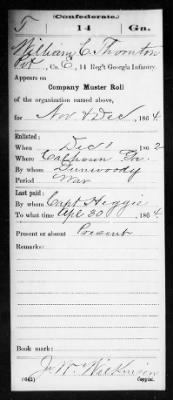 (Confederate.)
T 14 Ga.
William C. Thornton
Pvt, Co. C, 14 Reg't Georgia Infantry.
Appears on
Company Muster Roll
of the organization named above,
for Nov & Dec, 1864.
Enlisted:
When Dec 1, 1862
Where Calhoun Ga.
By whom Dunwoody
Period War
Last paid:
By whom Capt. Heggie
To what time Apl 30, 1864.
Present or absent Present
Remarks:
Book mark:
J. W. Wilkinson
(642) Copyist.